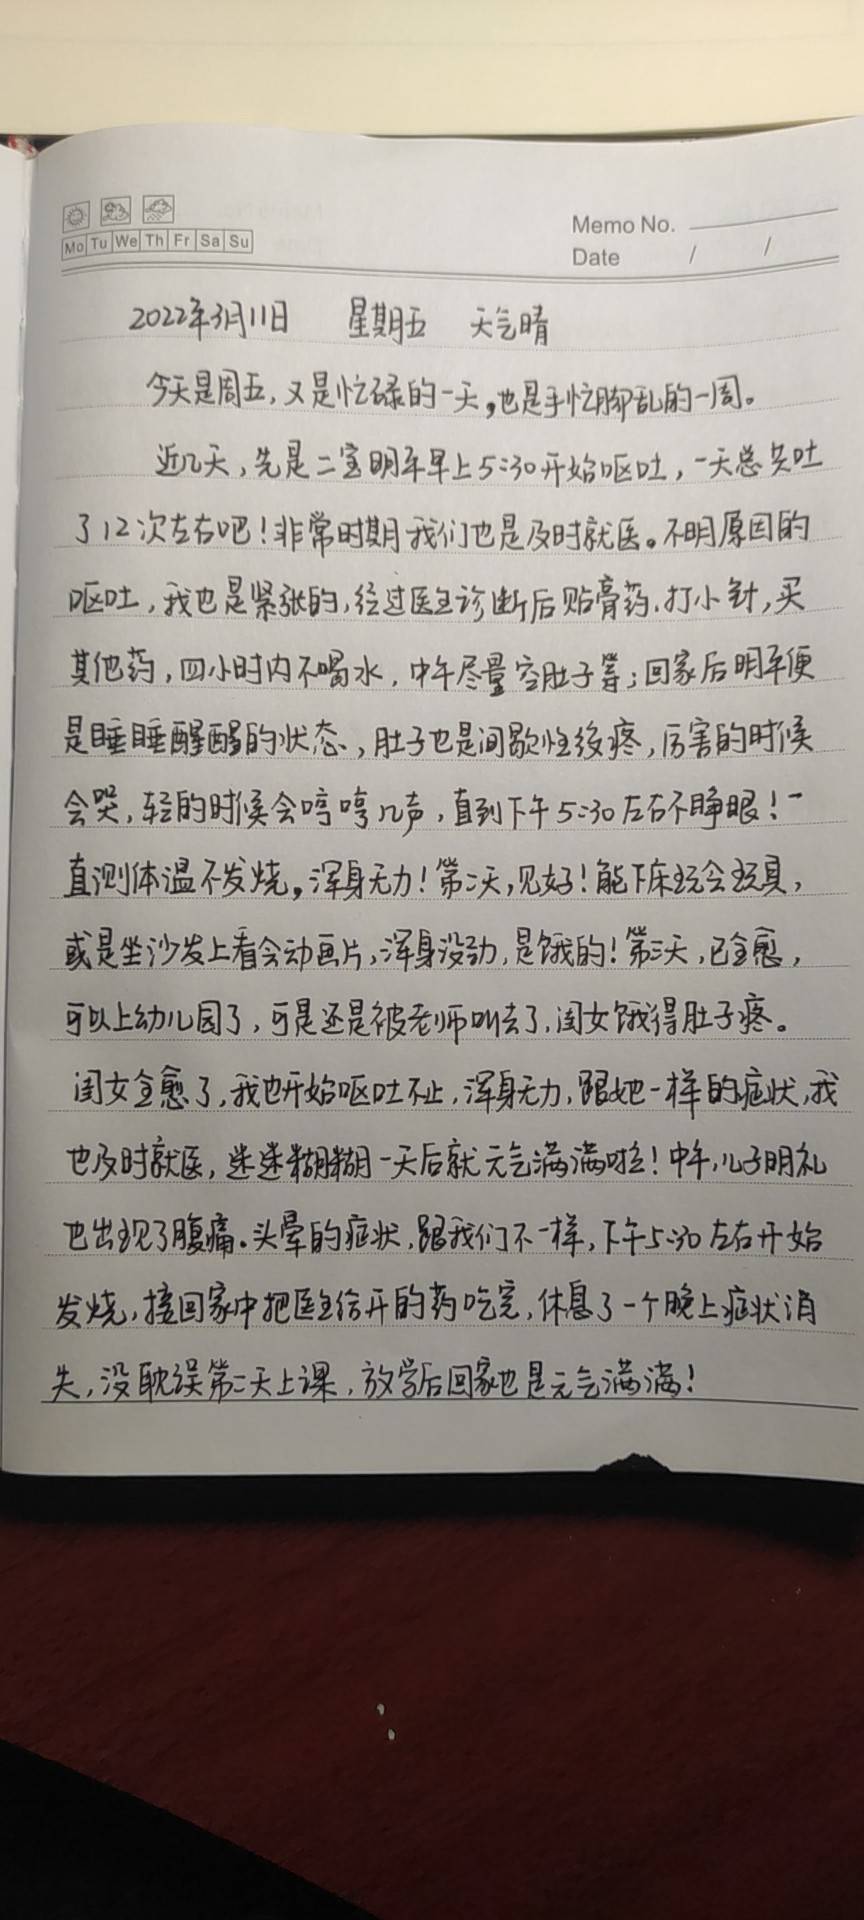 Mo Tu We Th Fr Sa Su
Memo No.
Date / /
2022年3月11日 星期五 天气晴
今天是周五,又是忙碌的一天,也是手忙脚乱的一周。
近几天,先是二宝明年早上5:30开始呕吐,一天总共吐
了12次左右吧!非常时期我们也是及时就医。不明原因的
呕吐,我也是紧张的,经过医生诊断后贴膏药、打小针,买
其他药,四小时内不喝水,中午尽量空肚子等;回家后明年便
是睡睡醒醒的状态,肚子也是间歇性疼,厉害的时候
会哭,轻的时候会哼哼几声,直到下午5:30左右不睁眼!一
直测体温不发烧,浑身无力!第二天,见好!能下床玩会玩具,
或是坐沙发上看会动画片,浑身没劲,是饿的!第三天,已全愈,
可以上幼儿园了,可是还是被老师叫去了,闺女饿得肚子疼。
闺女全愈了,我也开始呕吐不止,浑身无力,跟她一样的症状,我
也及时就医,迷迷糊糊一天后就元气满满啦!中午,儿子明礼
也出现了腹痛.头晕的症状,跟我们不一样,下午5:30左右开始
发烧,接回家中把医生给开的药吃完,休息了一个晚上症状消
失,没耽误第二天上课,放学后回家也是元气满满!